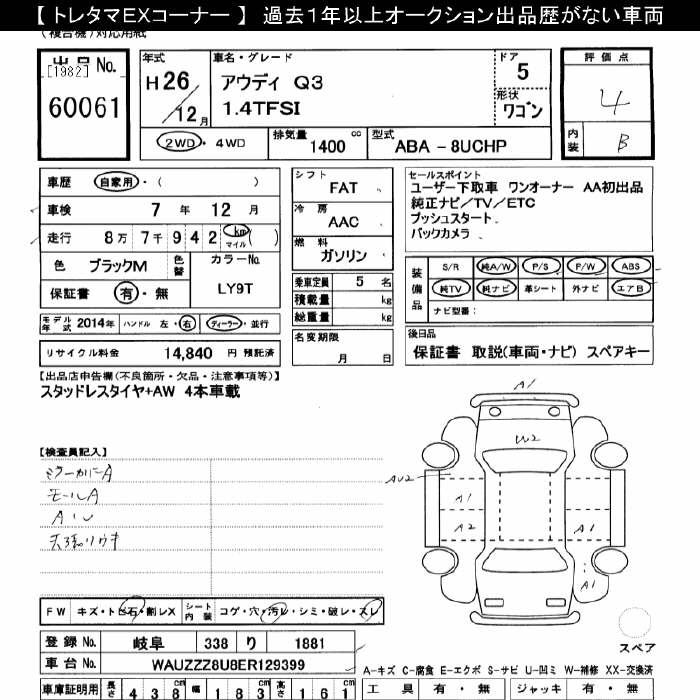 【 トレタマEXコーナー 】 過去１年以上オークション出品歴がない車両
(複合機)対応用紙
出品 No.
[1982]
60061
年式
H 26
12 月
車名・グレード
アウディ Q3
1.4TFSI
ドア
5
形状
ワゴン
評価点
4
内装
B
2WD ・ 4WD
排気量
1400 cc
型式
ABA － 8UCHP
車歴 自家用・( )
車検 7 年 12 月
走行 8万 7千 9 4 2 km マイル ( )
色 ブラックM
色替
カラーNo.
LY9T
保証書 有・無
シフト
FAT
冷房
AAC
燃料
ガソリン
乗車定員 5 名
積載量 kg
総重量 kg
名変期限
月 日
セールスポイント
ユーザー下取車 ワンオーナー AA初出品
純正ナビ／TV／ETC
プッシュスタート
バックカメラ
装備品
S/R 純A/W P/S P/W ABS
純TV 純ナビ 革シート 外ナビ エアB
ナビ型番：
モデル年式 2014年 ハンドル 左・右 ディーラー・並行
リサイクル料金 14,840 円 預託済
後日品
保証書 取説(車両・ナビ) スペアキー
【出品店申告欄(不良箇所・欠品・注意事項等)】
スタッドレスタイヤ+AW 4本車載
【検査員記入】
モールA
A1
W2
AU2
A1
A2
A1
A1
FW キズ・トビ石・割レX
シート内装 コゲ・穴・汚レ・シミ・破レ・スレ
登録 No. 岐阜 338 り 1881
車台 No. WAUZZZ8U8ER129399
スペア
A-キズ C-腐食 E-エクボ S-サビ U-凹ミ W-補修 XX-交換済
車庫証明用 長さ 4 3 8 cm 幅 1 8 3 cm 高さ 1 6 1 cm
工具 有・無 ジャッキ 有・無